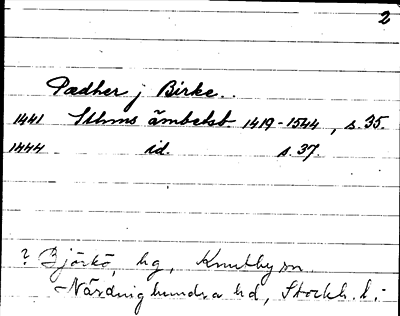 2
Pædher j Birke.
1441 Sthms ämbetsb. 1419-1544, s. 35.
1444 id. s. 37.
? Björkö, hg, Knutby sn
Närdinghundra hd, Stockh. l.